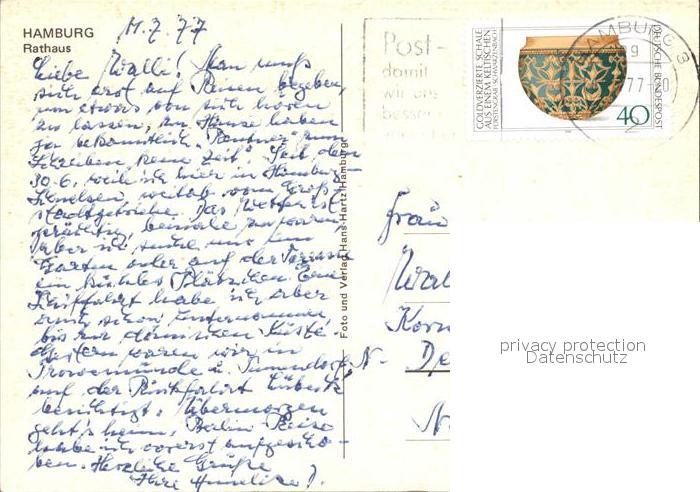 HAMBURG
Rathaus
11.7.77
Liebe Walli! Man muß
sich erst auf Reisen begeben,
um etwas von sich hören
zu lassen, zu Hause haben
ja bekanntlich "Rentner" zum
Schreiben keine Zeit! Seit dem
30.6. weile ich hier in Hamburg-
weitab vom Groß-
stadtgetriebe. Das Wetter ist
beinahe zu warm,
aber ich suche mir im
Garten oder auf der Terrasse
ein kühles Plätzchen. Eine
Schiffahrt habe ich aber
auch schon unternommen
bis zur dänischen Küste.
Gestern waren wir in
Travemünde u.
auf der Rückfahrt Lübeck
besichtigt. Übermorgen
geht's heim. Berlin-Reise
habe ich vorerst aufgescho-
ben. Herzliche Grüße
Ihre
Foto und Verlag Hans Hartz Hamburg
Post-
damit
wir uns
besser
GOLDVERZIERTE SCHALE
AUS EINEM KELTISCHEN
FÜRSTENGRAB SCHWARZENBACH
40
DEUTSCHE BUNDESPOST
HAMBURG
Frau
Wal
Korn
De
privacy protection
Datenschutz